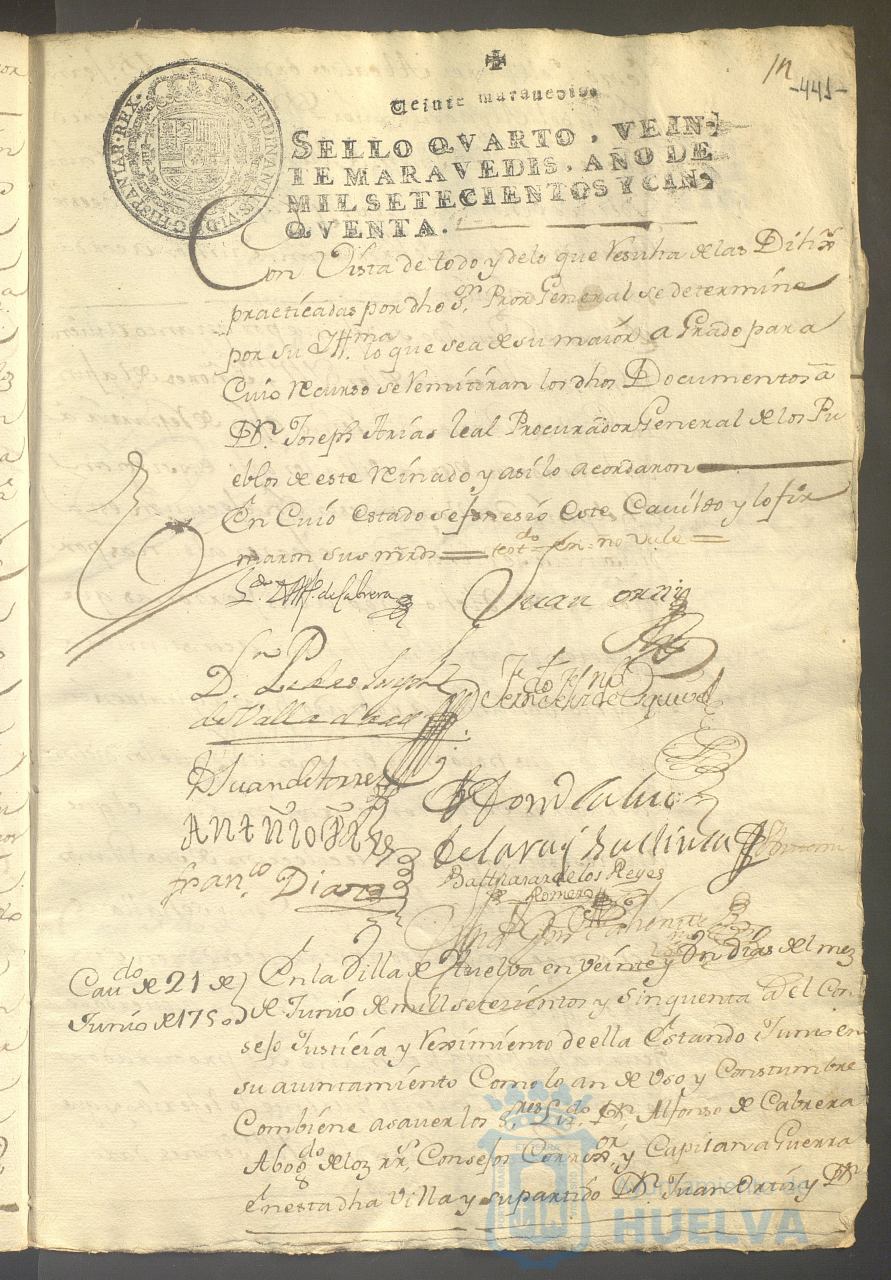 1n
-441-
Veinte maravedis.
SELLO QVARTO, VEIN-
TE MARAVEDIS, AÑO DE
MIL SETECIENTOS Y CIN-
QVENTA.
FERDINANDUS·VI·D·G·HISPANIAR·REX·
Con Vista de todo y delo que Resulta de las Dilixs
practicadas por dho Sor. Pror General se determine
por su Illma. lo que sea de su maior a Grado para
Cuio Recurso se Remitiran los dhos Documentos a
Dn. Joseph Arias leal Procurador General de los Pu
eblos de este Reinado, y asi lo acordaron
En Cuio estado se fenesio este Cavildo y lo fir
maron sus mrds = testdo = en = no vale =
Ldo. D Alf. de Cabrera
Juan ortiz
Dn Pedro Joseph
de Valladares
D Juan de torres
ANTOÑIO
franco. Diaz
Balthasar de los Reyes
Romero
Caudo de 21 de
Junio de 1750
En la Villa de Huelva en veinte y Un dias del mez
de Junio de mill setezientos y Sinquenta a. el Con
sejo Justicia y Reximiento de ella Estando Juntos en
su aiuntamiento Como lo an de Uso y Constumbre
Combiene asaver los Sres Lizdo. Dn. Alfonso de Cabrera
Abogdo de loz Rrs. Consejos Correxor, y Capitan a Guerra
En esta dha Villa y su partido Dn. Juan Ortiz y Dn
Ayuntamiento de
HUELVA